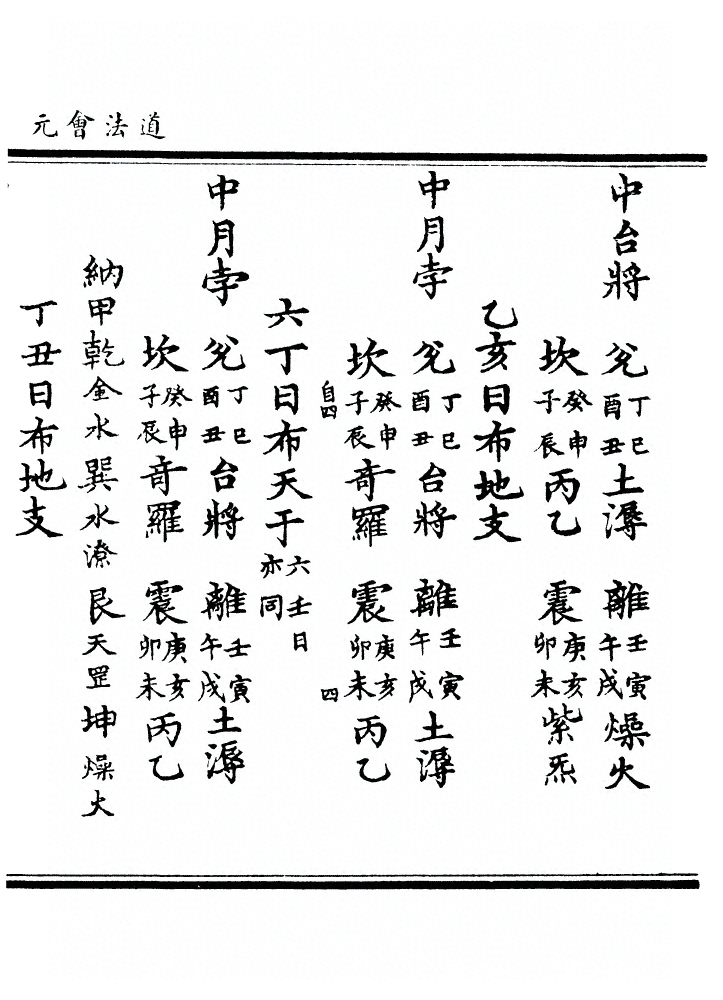 道法會元
中台將 兌丁巳酉丑土溽 離壬寅午戌燥火
坎癸申子辰丙乙 震庚亥卯未紫炁
乙亥日布地支
中月孛 兌丁巳酉丑台將 離壬寅午戌土溽
坎癸申子辰奇羅 震庚亥卯未丙乙
自四 四
六丁日布天干六壬日亦同
中月孛 兌丁巳酉丑台將 離壬寅午戌土溽
坎癸申子辰奇羅 震庚亥卯未丙乙
納甲乾金水巽水潦艮天罡坤燥火
丁丑日布地支